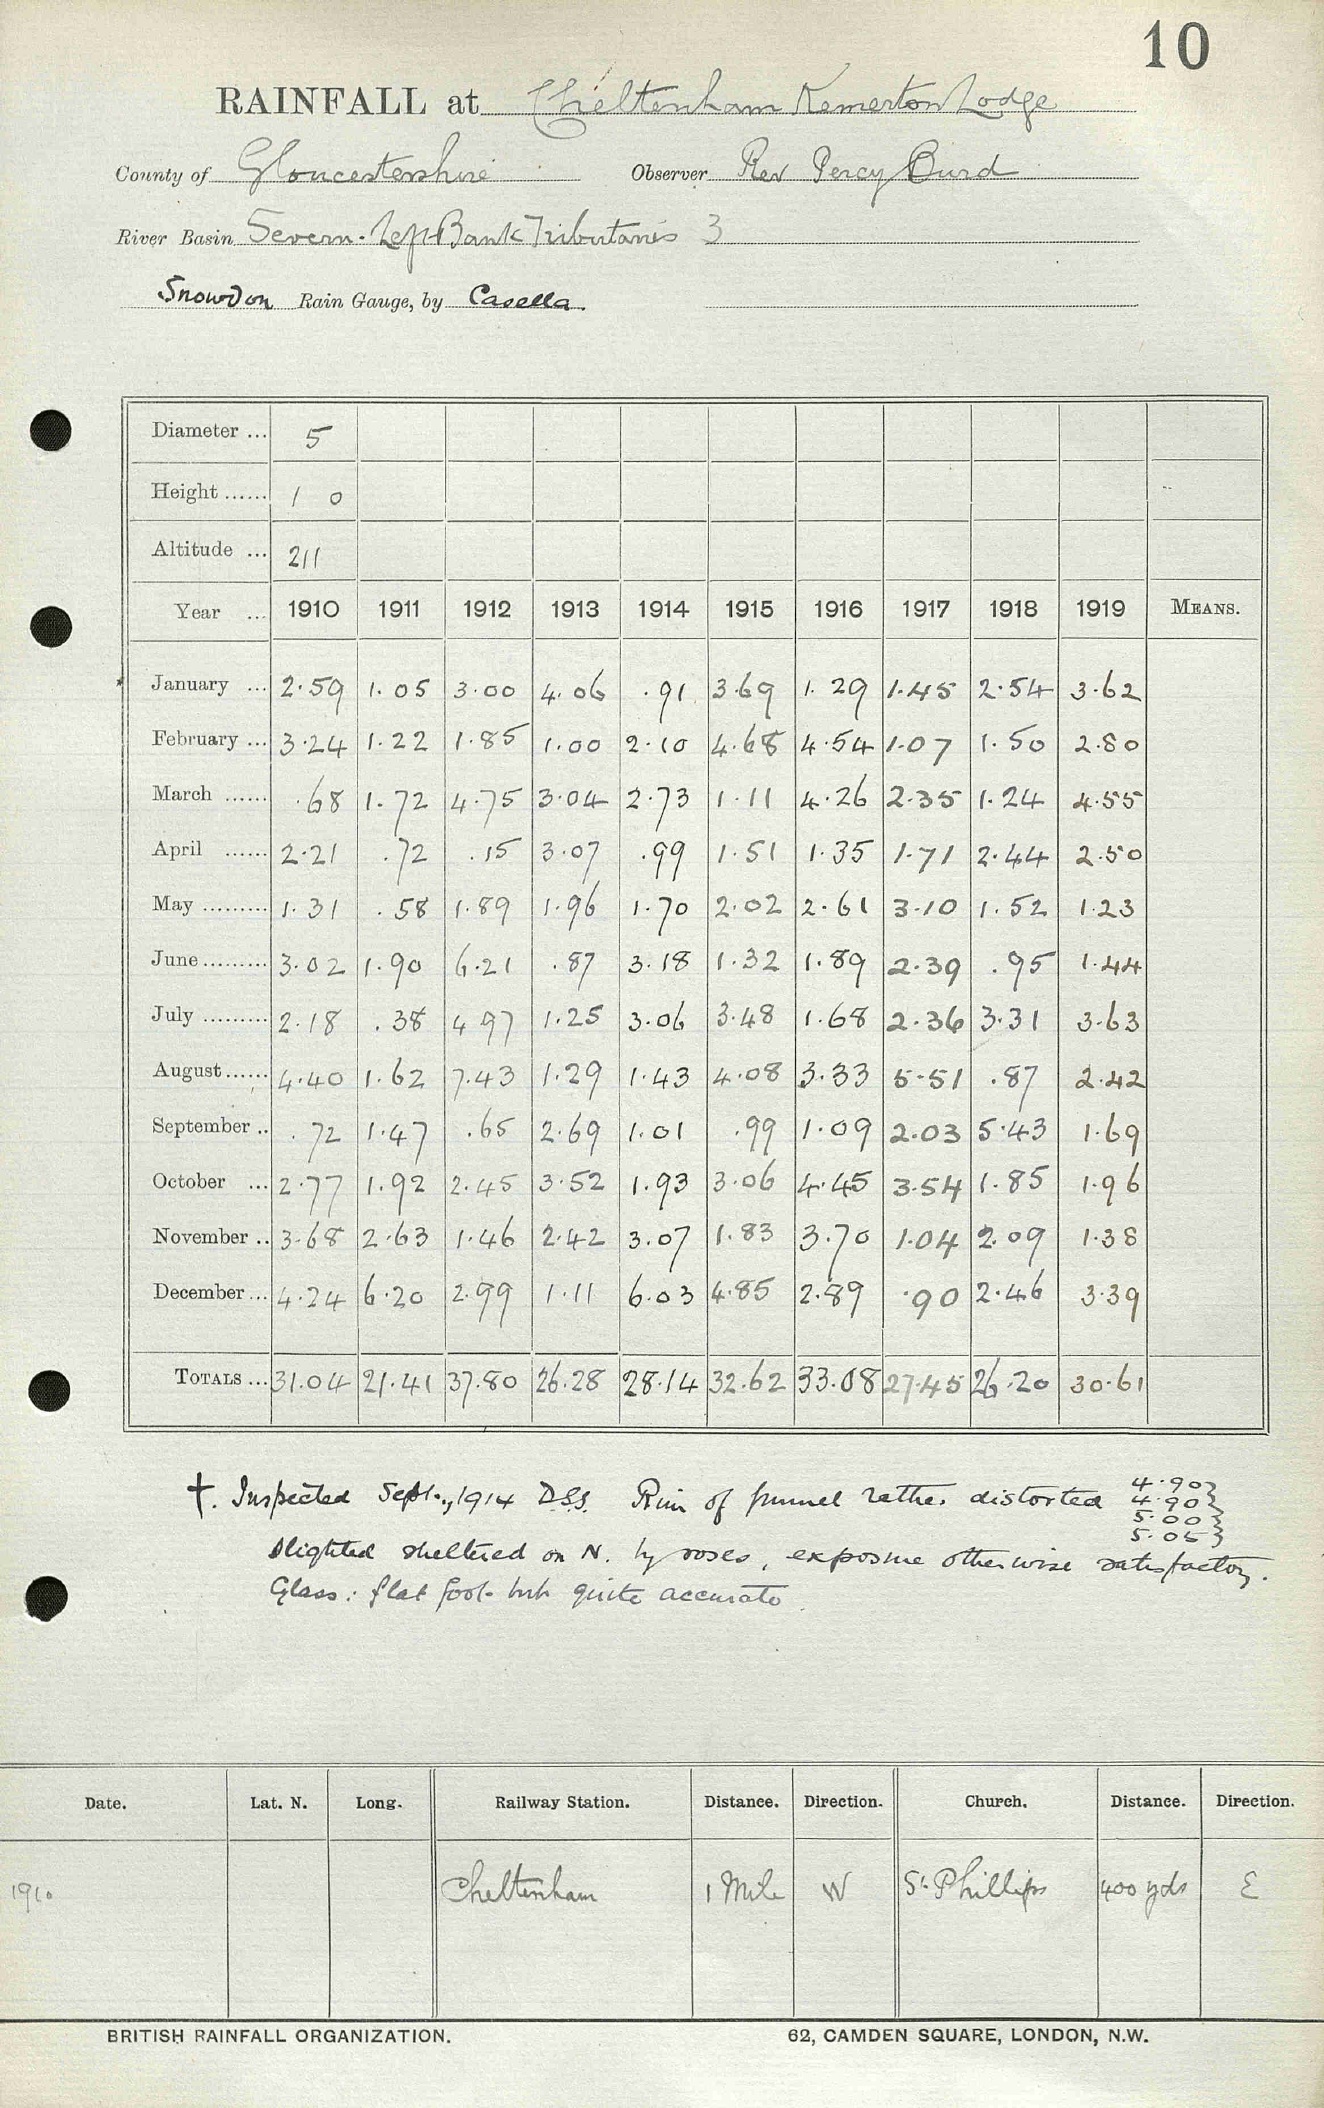 10
RAINFALL at Cheltenham Kemerton Lodge
County of Gloucestershire Observer Rev Percy Burd
River Basin Severn - Left Bank Tributaries 3
Snowdon Rain Gauge, by Casella.
Diameter ... 5
Height ...... 1 0
Altitude ... 211
Year ... 1910 1911 1912 1913 1914 1915 1916 1917 1918 1919 MEANS.
January ... 2.59 1.05 3.00 4.06 .91 3.69 1.29 1.45 2.54 3.62
February ... 3.24 1.22 1.85 1.00 2.10 4.68 4.54 1.07 1.50 2.80
March ...... .68 1.72 4.75 3.04 2.73 1.11 4.26 2.35 1.24 4.55
April ...... 2.21 .72 .15 3.07 .99 1.51 1.35 1.71 2.44 2.50
May ......... 1.31 .58 1.89 1.96 1.70 2.02 2.61 3.10 1.52 1.23
June ......... 3.02 1.90 6.21 .87 3.18 1.32 1.89 2.39 .95 1.44
July ......... 2.18 .38 4 97 1.25 3.06 3.48 1.68 2.36 3.31 3.63
August ...... 4.40 1.62 7.43 1.29 1.43 4.08 3.33 5.51 .87 2.42
September .. .72 1.47 .65 2.69 1.01 .99 1.09 2.03 5.43 1.69
October ... 2.77 1.92 2.45 3.52 1.93 3.06 4.45 3.54 1.85 1.96
November .. 3.68 2.63 1.46 2.42 3.07 1.83 3.70 1.04 2.09 1.38
December ... 4.24 6.20 2.99 1.11 6.03 4.85 2.89 .90 2.46 3.39
TOTALS ... 31.04 21.41 37.80 26.28 28.14 32.62 33.08 27.45 26.20 30.61
†. Inspected Sept., 1914 D.S.S. Rim of funnel rather distorted 4.90 }
4.90 }
5.00 }
5.05 }
Slighted sheltered on N. by roses, exposure otherwise satisfactory.
Glass: flat foot but quite accurate
Date. Lat. N. Long. Railway Station. Distance. Direction. Church. Distance. Direction.
1910 Cheltenham 1 Mile W St Phillips 400 yds E
BRITISH RAINFALL ORGANIZATION. 62, CAMDEN SQUARE, LONDON, N.W.